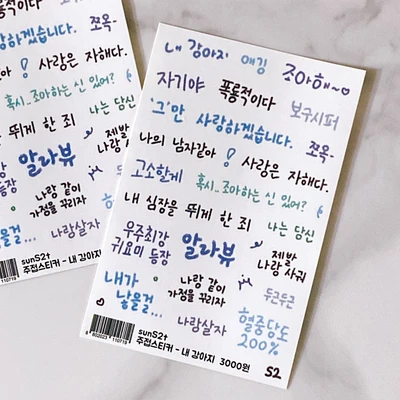 내 강아지
애깅
조아해~♡
자기야
폭룡적이다
보구시퍼
'그'만 사랑하겠습니다.
쪼옥-
나의 남자같아!
사랑은 자해다.
고소할게
혹시..조아하는 신 있어?
내 심장을 뛰게 한 죄
나는 당신
우주최강
귀요미 등장
알라뷰
제발
나랑 사귀
나랑 같이
가정을 꾸리자
두근두근
내가
낳을걸...
나랑살자
혈중당도
200%
sunS2t
주접스티커 - 내 강아지 3000원
S2
폭룡적이다
쪼옥-
하겠습니다.
사랑은 자해다.
혹시..조아하는 신 있어?
나는 당신
뛰게 한 죄
등장
알라뷰
제발
나랑 사
나랑 같이
가정을 꾸리자
을걸...
나랑살자
sunS2t
주접스티커 - 내 강아지
110719